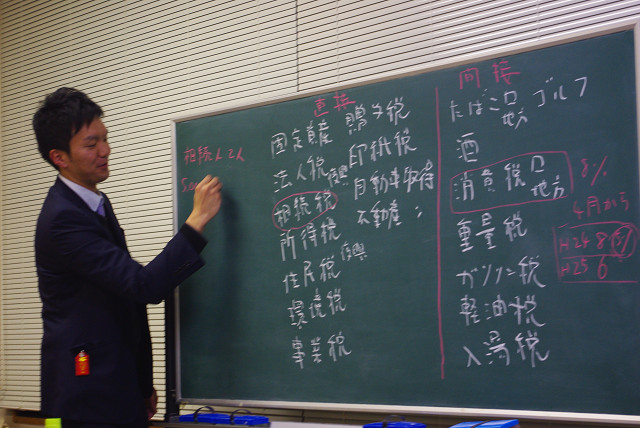 相続人 2人
5,0
直接
固定資産
法人税 復興
相続税
所得税 復興
住民税
環境税
事業税
贈与税
印紙税
自動車取得
不動産 〃
間接
たばこ 地方 ゴルフ
酒
消費税 地方
重量税
ガソリン税
軽油税
入湯税
8%
4月から
H24 8
H25 6